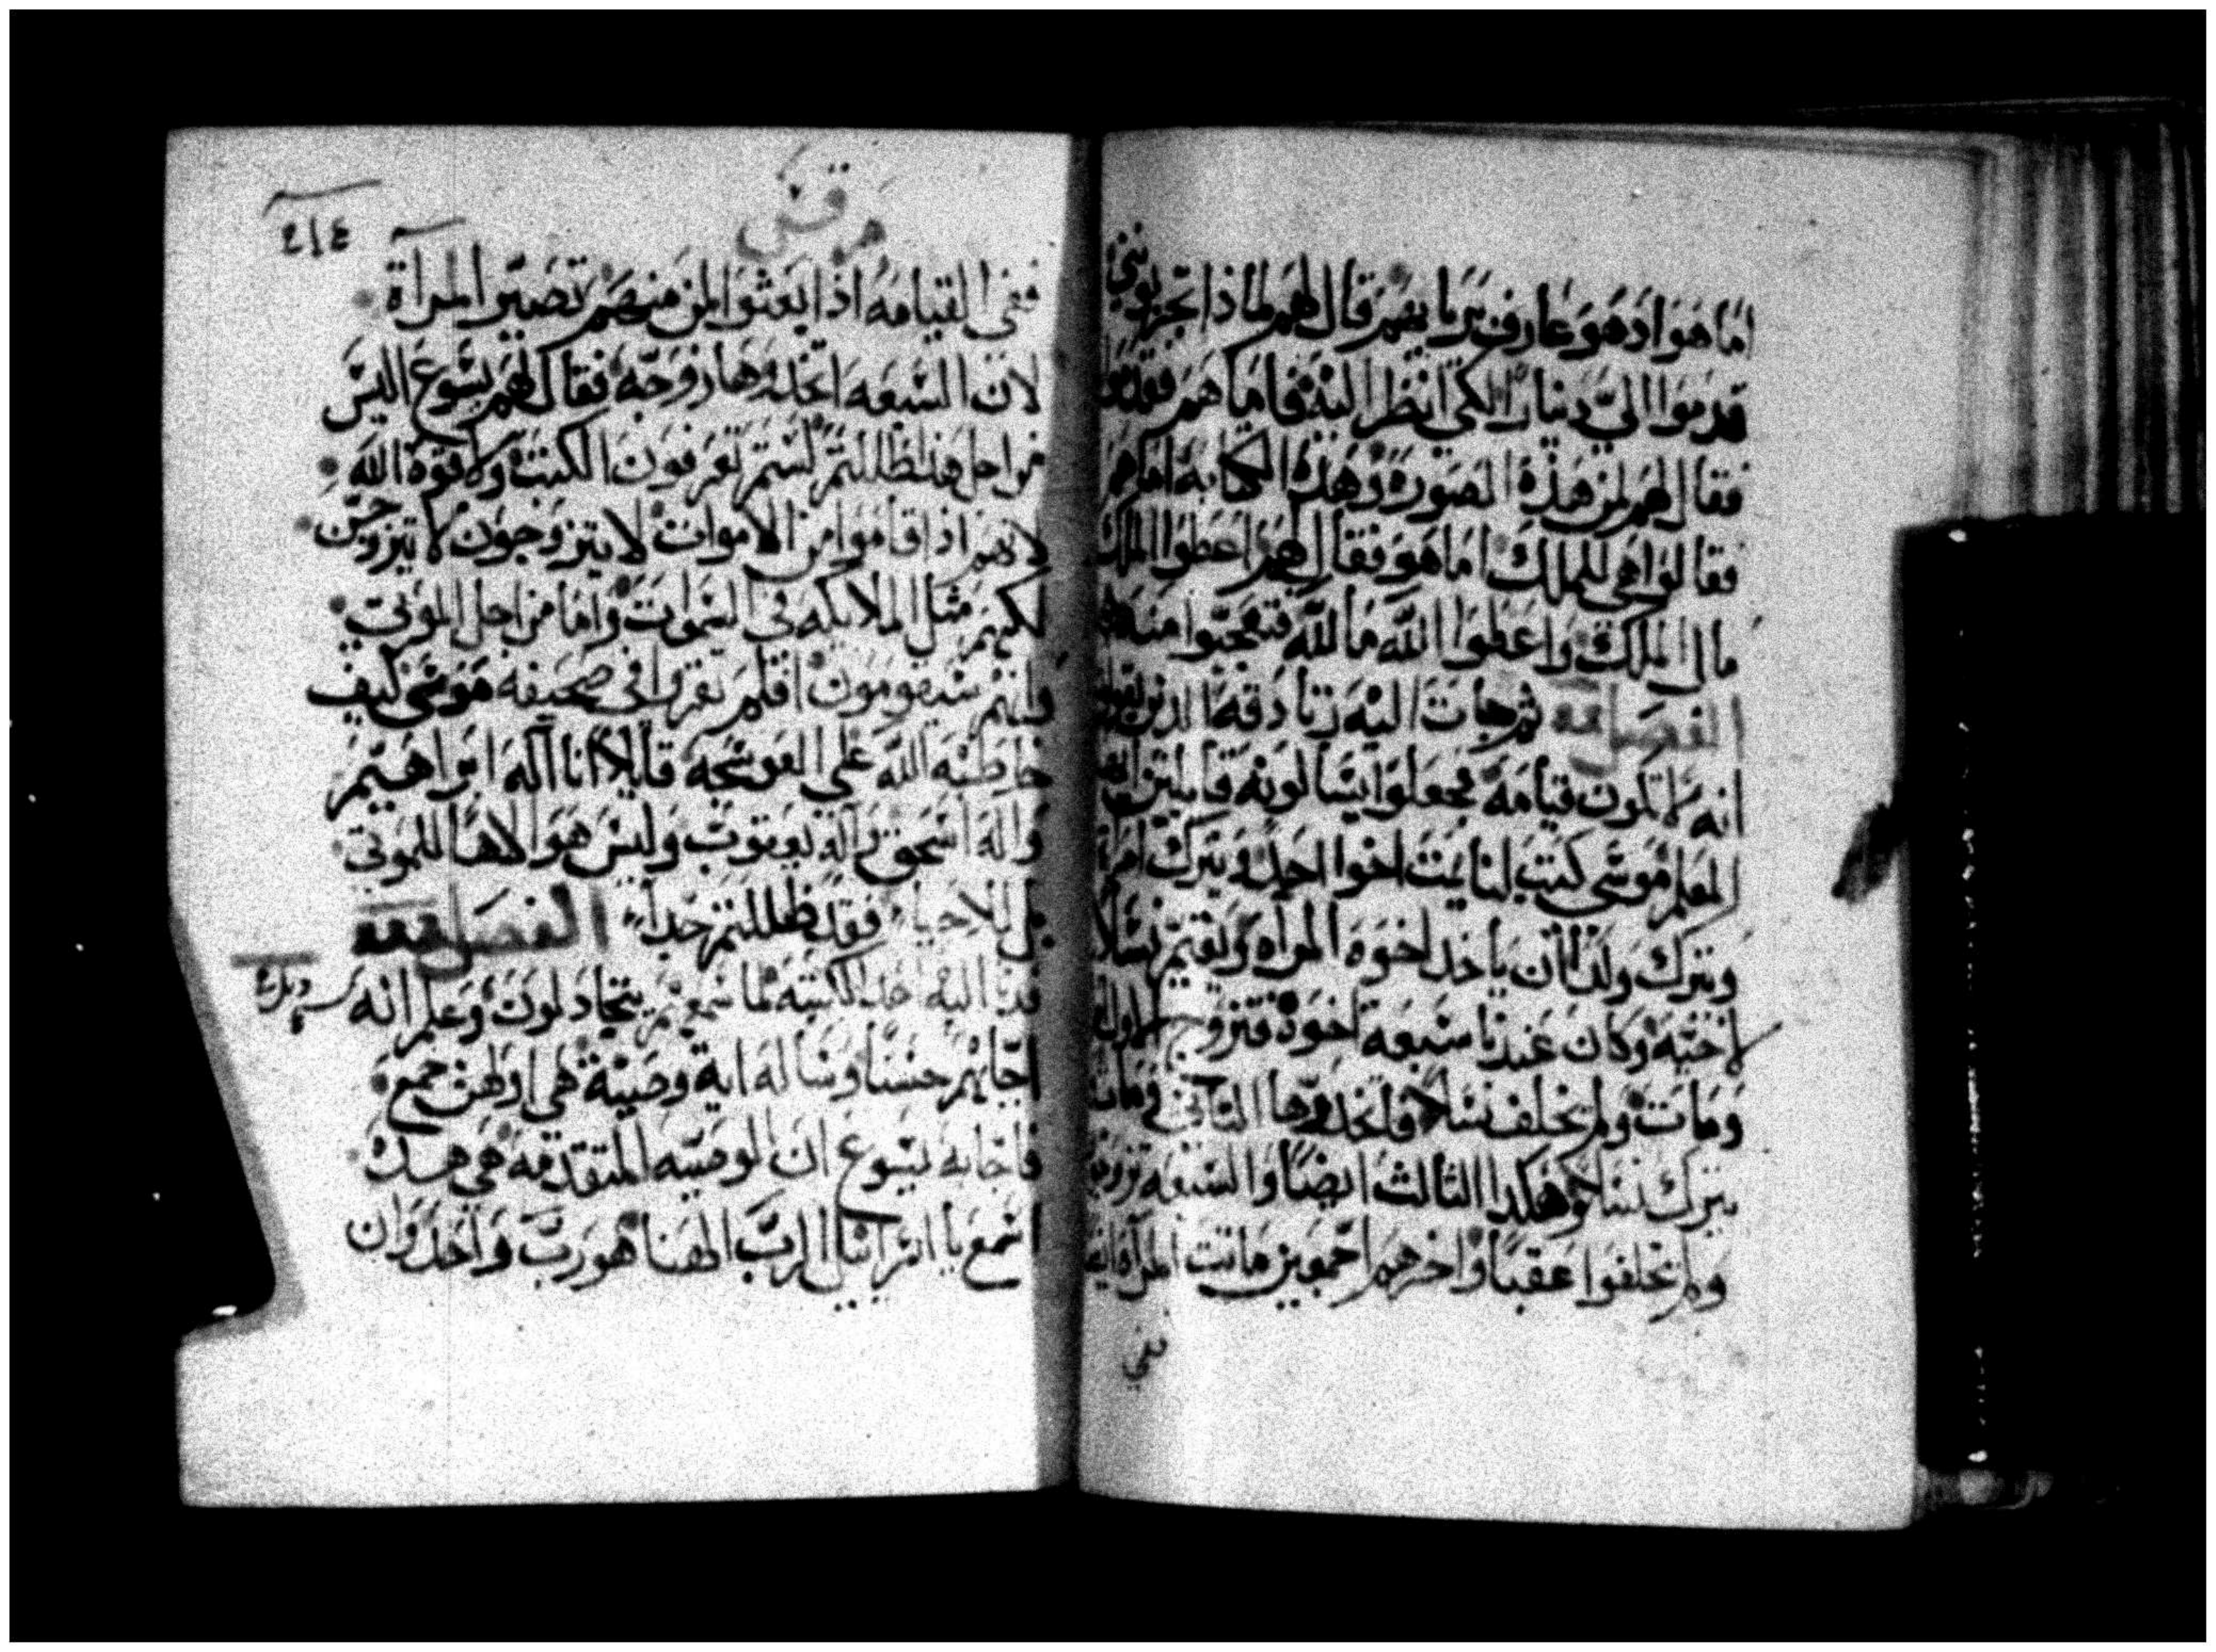 اما هو اذ هو عارف بريايهم قال لهم لماذا تجربونني
قدموا اليّ دينارا لكي انظر اليه فاما هم فقدموا
فقال لهم لمن هذه الصوره وهذه الكتابه اما هم
فقالوا هي للملك اما هو فقال لهم اعطوا الملك
مال الملك واعطوا الله ما لله فتعجبوا منه
الفصل ثم جات اليه زنادقه الذين يقولون
انه لا تكون قيامه فجعلوا يسالونه قايلين
المعلم موسى كتب لنا يمت اخوا احد ويترك امراه
ويترك ولدا ان ياخد اخوه المراه ويقيم نسلا
لاخيه وكان عندنا سبعه اخوه فتزوج الاول
ومات ولم يخلف نسلا فاخدها الثاني ومات
يترك نسلا وهكدا الثالث ايضا والسبعه تزوجوا
ولم يخلفوا عقبا واخرهم اجمعين ماتت المراه ايضا
ففي
مرقس
ففي القيامه اذا يعثوا لمن منهم تصير المراة
لان السبعه اتخذوها زوجه فقال لهم يسوع اليس
من اجل هذا ظللتم لستم تعرفون الكتب ولا قوة الله
لانهم اذا قاموا من الاموات لا يتزوجون لا يتزوجن
لكنهم مثل الملايكه في السموات واما من اجل الموتي
فانهم سيقومون افلم تقروا في صحيفه موسى كيف
خاطبه الله على العوسجه قايلا انا اله ابراهيم
واله اسحق واله يعقوب وليس هو الاها للموتي
بل للاحيا فقد ظللتم جدا الفصل
فدنا اليه احد الكتبه لما سمعهم يتجادلون وعلم انه
اجابهم حسنا وساله اية وصية هي اولهن جمع
فاجابه يسوع ان الوصيه المتقدمه هي هده
اسمع يا اسراييل الرب الهنا هو رب واحد وان